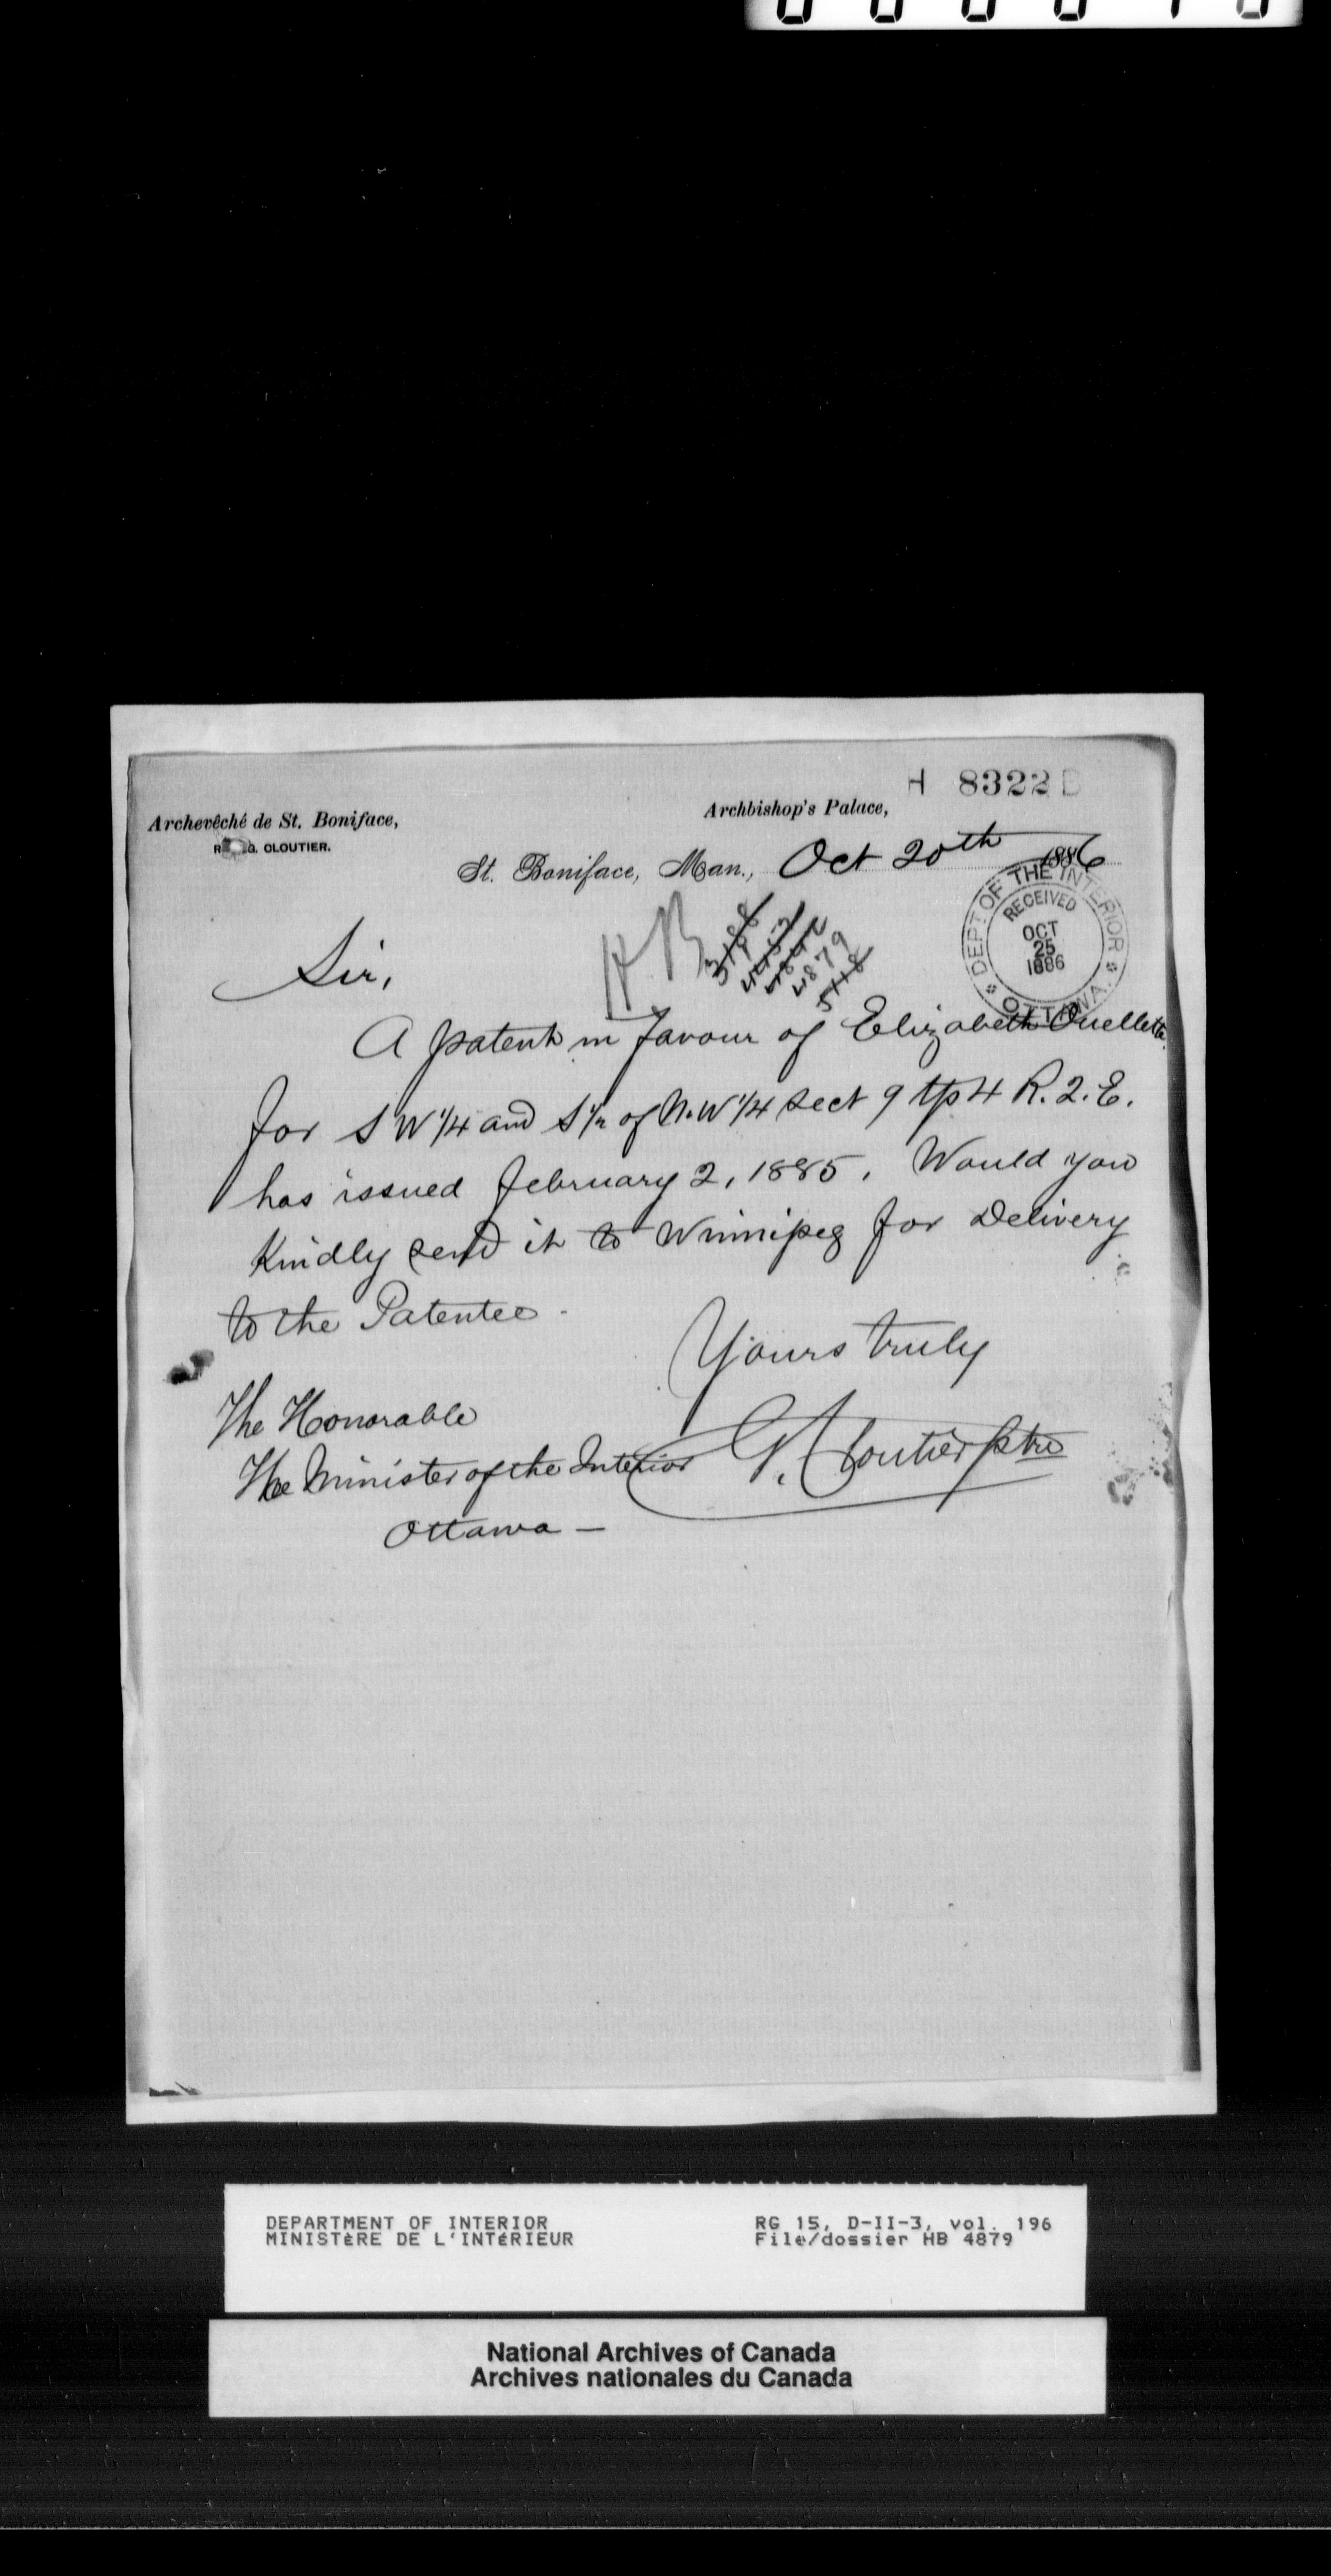 H 8322 B
Archevêché de St. Boniface,
Archbishop's Palace,
G. CLOUTIER.
St. Boniface, Man., Oct 20th 1886
DEPT OF THE INTERIOR
RECEIVED
OCT
25
1886
OTTAWA.
HB
3188
4879
Sir,
A patent in favour of Elizabeth Ouellette
for S W 1/4 and S 1/2 of N.W 1/4 sect 9 tp 4 R. 2. E.
has issued February 2, 1885. Would you
Kindly send it to Winnipeg for Delivery
to the Patentee -
Yours truly
The Honorable
The Minister of the Interior G. Cloutier ptre
Ottawa —
DEPARTMENT OF INTERIOR
MINISTÈRE DE L'INTÉRIEUR
RG 15, D-II-3, vol. 196
File/dossier HB 4879
National Archives of Canada
Archives nationales du Canada